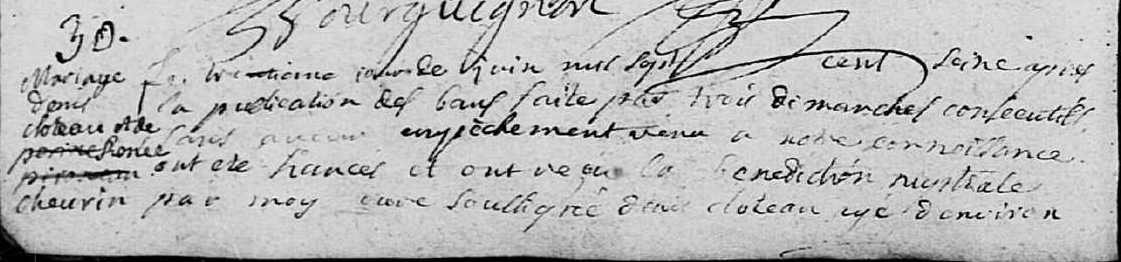 Bourguignon
30.
Mariage
denis
cloteau et de
perine Renée
cheurin
Le trentieme jour de juin mil sept cent seize apres
la publication des bans faite par trois dimanches consecutifs
sans aucun empêchement venu a notre connoissance
ont été fiancés et ont reçu la benediction nuptiale
par moy curé soussigné denis cloteau agé d'environ